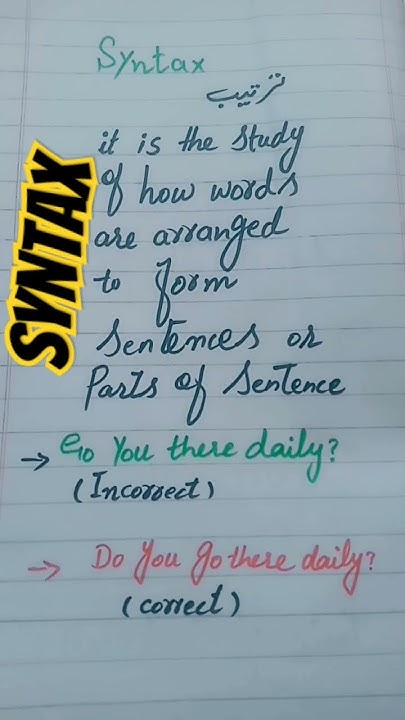 Syntax
ترتیب
SYNTAX
it is the study
of how words
are arranged
to form
Sentences or
Parts of Sentence
→ Go You there daily?
(Incorrect)
→ Do You go there daily?
(correct)